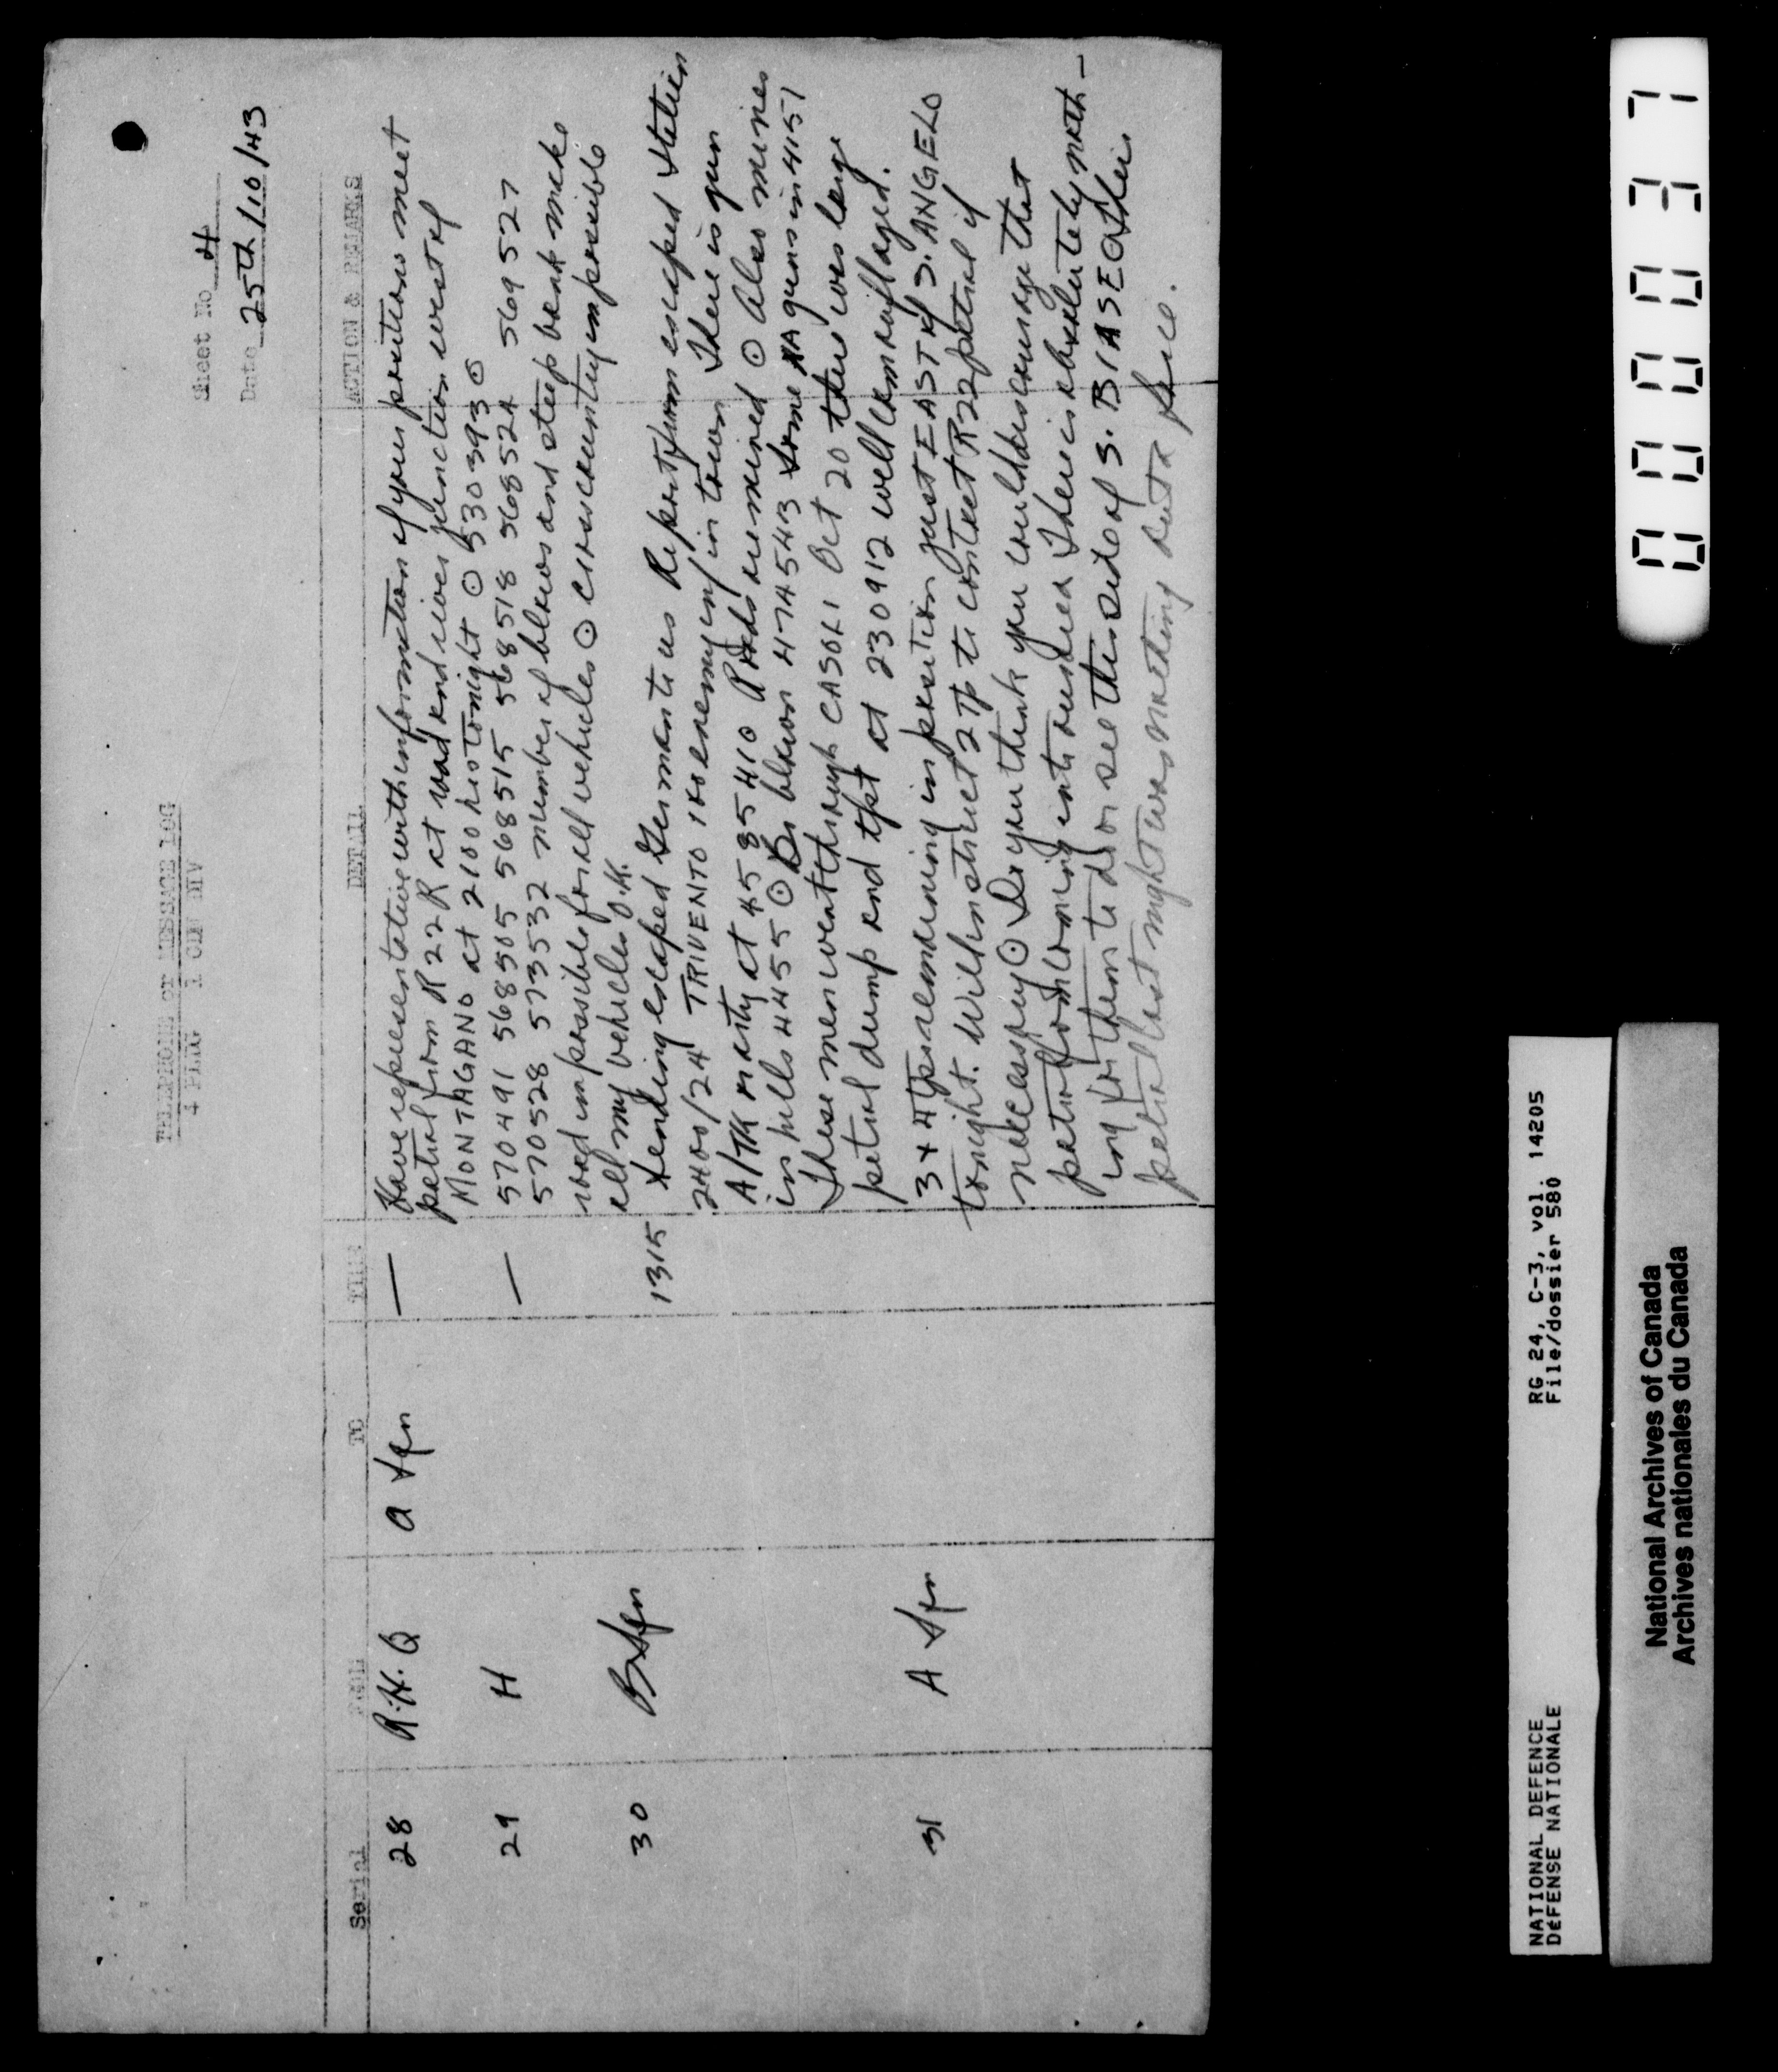 TELEPHONE OR MESSAGE LOG
4 PLDG 1 CDN DIV
Sheet No 4
Date 25th/10/43
Serial FROM TO TIME DETAIL ACTION & REMARKS
28 R.H.Q A Sqn — Have representative with information of your positions meet
patrol from R 22 R at road and river junction west of
MONTAGANO at 2100 hrs tonight ⊙ 530393 ⊙
29 H — 570491 568505 568515 568518 568524 569527
570528 573532 number of blows and steep bank make
road impossible for all vehicles ⊙ cross country impossible
all my vehicles O.K.
30 B Sqn 1315 Sending escaped Germans to us Report from escaped Station
2400/24 TRIVENTO no enemy in town There is gun
A/TK nearly at 485410 Roads are mined ⊙ Also mines
in hills 4455 ⊙ Br blown 474543 Some AA guns in 4151
These men went through CASOLI Oct 20 there was large
petrol dump and at 230912 well camouflaged.
31 A Sqn 3 & 4 Tps remaining in position just EAST of S. ANGELO
tonight. Will instruct 2 Tp to contact R22 patrol if
necessary ⊙ Do you think you could discourage that
patrol from coming into our area There is absolutely noth-
ing for them to do or see this side of S. BIASE ⊙ Their
patrol last night was nothing but a farce.
0000037
NATIONAL DEFENCE RG 24, C-3, vol. 14205
DÉFENSE NATIONALE File/dossier 580
National Archives of Canada
Archives nationales du Canada